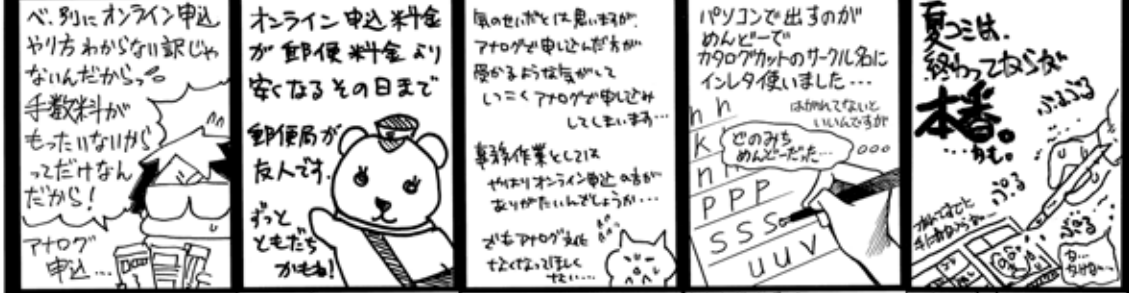 べ、別にオンライン申込
やり方わからない訳じゃ
ないんだからっ
手数料が
もったいないから
ってだけなん
だから！
アナログ
申込…
オンライン申込料金
が郵便料金より
安くなるその日まで
郵便局が
友人です。
ずっと
ともだち
かもね！
気のせいだとは思いますが、
アナログで申し込んだ方が
受かるような気がして
しつこくアナログで申し込み
してしまいます…
事務作業としては
やはりオンライン申込の方が
ありがたいんでしょうか…
でもアナログ文化
なくなってほしく
ない…
パソコンで出すのが
めんどーで
カタログカットのサークル名に
インレタ使いました…
はがれてないと
いいんですが
どのみち
めんどーだった…
n n
k
n n
P P P
S S S
u u v
夏コミは、
終わってからが
本番。
…かも。
ぷるぷる
ぷる
ぷるぷる